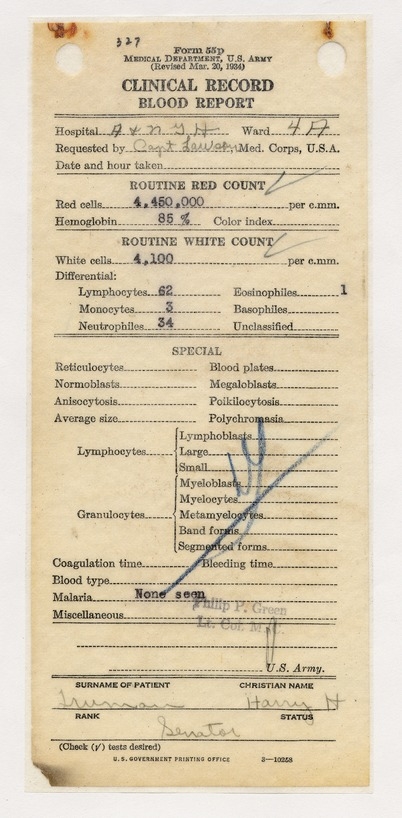 327
Form 55p
MEDICAL DEPARTMENT, U.S. ARMY
(Revised Mar. 20, 1934)
CLINICAL RECORD
BLOOD REPORT
Hospital A & N G H Ward 4 A
Requested by Capt Lawson, Med. Corps, U.S.A.
Date and hour taken
ROUTINE RED COUNT ✓
Red cells 4,450,000 per c.mm.
Hemoglobin 85 % Color index
ROUTINE WHITE COUNT ✓
White cells 4,100 per c.mm.
Differential:
Lymphocytes 62 Eosinophiles 1
Monocytes 3 Basophiles
Neutrophiles 34 Unclassified
SPECIAL
Reticulocytes Blood plates
Normoblasts Megaloblasts
Anisocytosis Poikilocytosis
Average size Polychromasia
Lymphoblasts
Lymphocytes Large
Small
Myeloblasts
Myelocytes
Granulocytes Metamyelocytes
Band forms
Segmented forms
Coagulation time Bleeding time
Blood type
Malaria None seen
Miscellaneous
Philip P. Green
Lt. Col. M.C.
U.S. Army.
SURNAME OF PATIENT CHRISTIAN NAME
Truman Harry H.
RANK STATUS
Senator
(Check (√) tests desired)
U.S. GOVERNMENT PRINTING OFFICE 3—10258